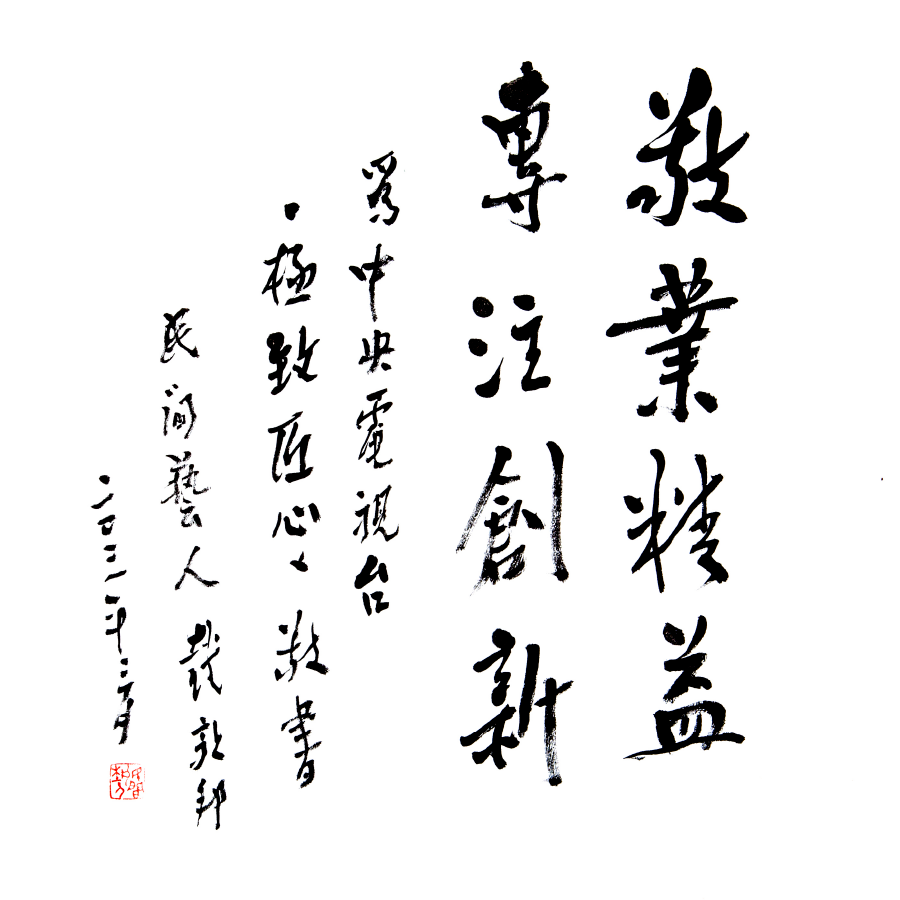 敬業精益
專注創新
爲中央電視台
、極致匠心、敬書
民間藝人戴敦邦
二〇二一年三月